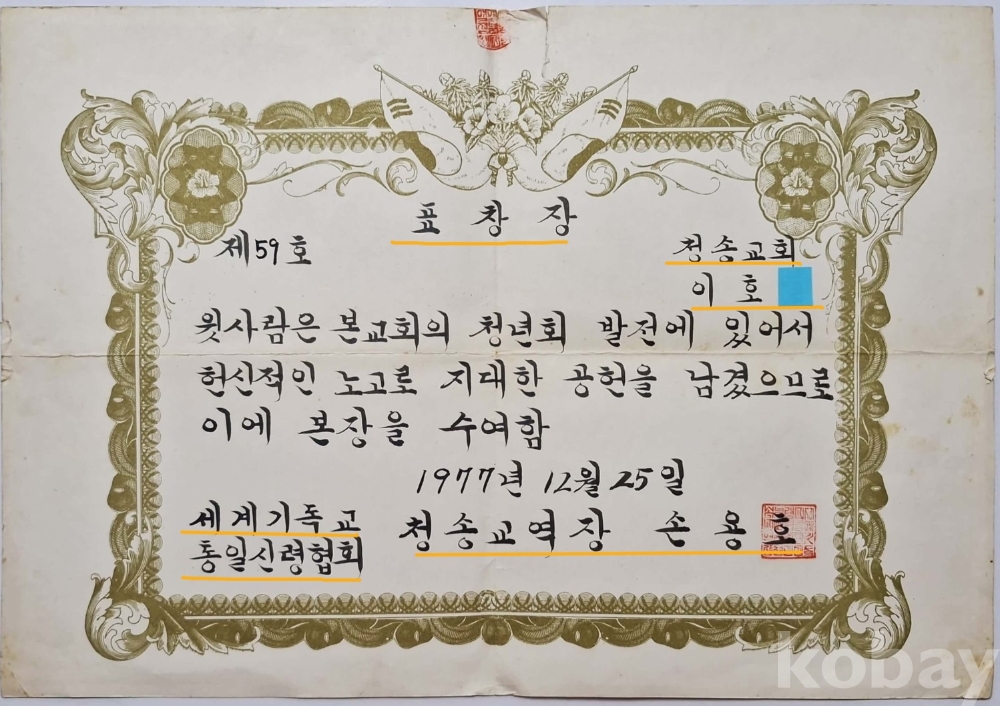 표 창 장
제 59 호
청송교회
이 호
윗사람은 본교회의 청년회 발전에 있어서
헌신적인 노고로 지대한 공헌을 남겼으므로
이에 본장을 수여함
1977년 12월 25일
세계기독교 청송교역장 손 용 호
통일신령협회
kobay